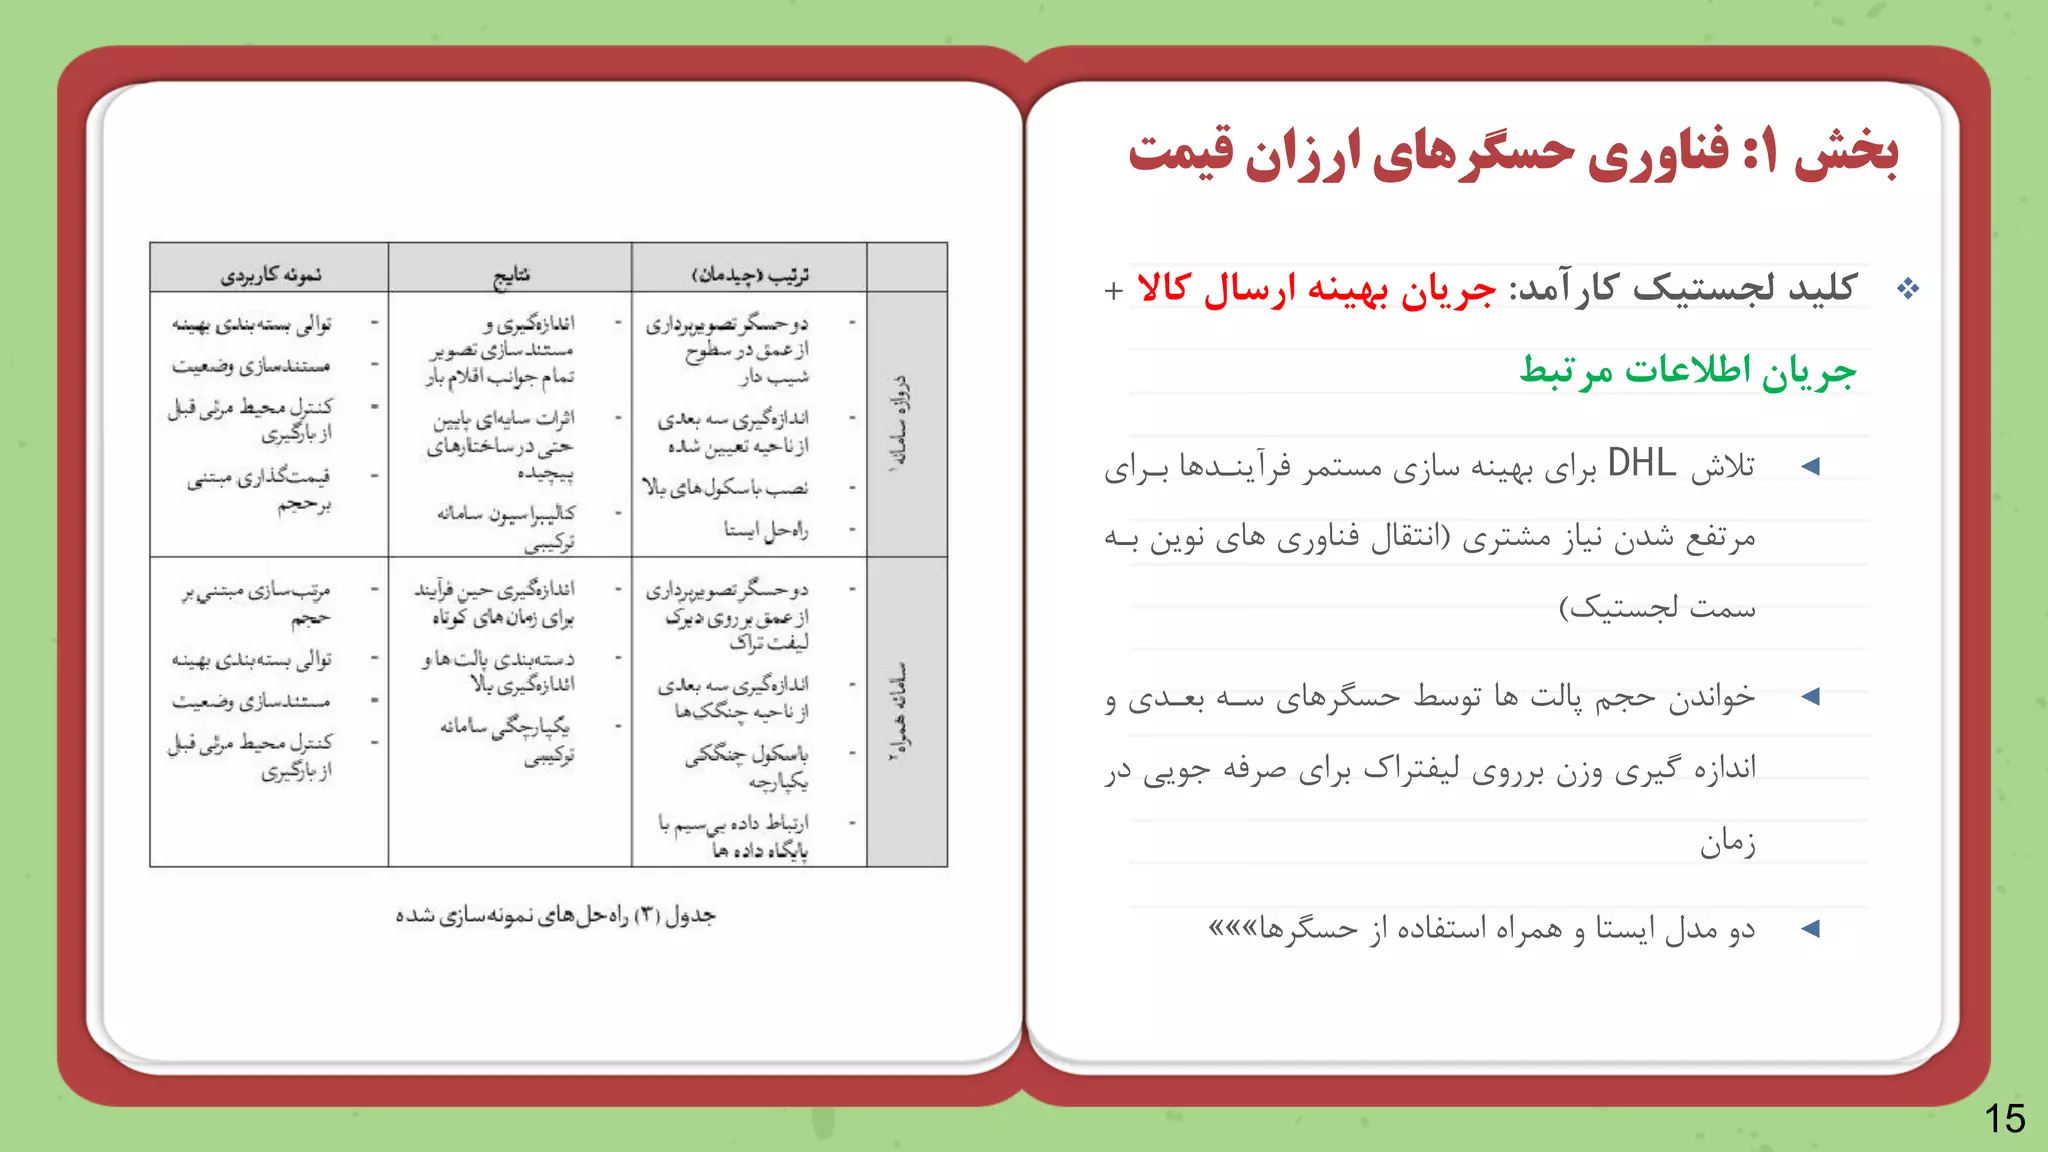 بخش ۱: فناوری حسگرهای ارزان قیمت
کلید لجستیک کارآمد: جریان بهینه ارسال کالا +
جریان اطلاعات مرتبط
تلاش DHL برای بهینه سازی مستمر فرآینـدها بـرای
مرتفع شدن نیاز مشتری (انتقال فناوری های نوین بـه
سمت لجستیک)
خواندن حجم پالت ها توسط حسگرهای سـه بعـدی و
اندازه گیری وزن برروی لیفتراک برای صرفه جویی در
زمان
دو مدل ایستا و همراه استفاده از حسگرها»»»
ترتیب (چیدمان)
نتایج
نمونه کاربردی
دروازه سامانه۱
- دو حسگر تصویربرداری
از عمق در سطوح
شیب دار
- اندازه‌گیری سه بعدی
از ناحیه تعیین شده
- نصب باسکول‌های بالا
- راه‌حل ایستا
- اندازه‌گیری و
مستندسازی تصویر
تمام جوانب اقلام بار
- اثرات سایه‌ای پایین
حتی در ساختارهای
پیچیده
- کالیبراسیون سامانه
ترکیبی
- توالی بسته‌بندی بهینه
- مستندسازی وضعیت
- کنترل محیط مرئی قبل
از بارگیری
- قیمت‌گذاری مبتنی
بر حجم
سامانه همراه۲
- دو حسگر تصویربرداری
از عمق بر روی دیرک
لیفت تراک
- اندازه‌گیری سه بعدی
از ناحیه چنگک‌ها
- باسکول چنگکی
یکپارچه
- ارتباط داده بی‌سیم با
پایگاه داده ها
- اندازه‌گیری حین فرآیند
برای زمان‌های کوتاه
- دسته‌بندی پالت ها و
اندازه‌گیری بالا
- یکپارچگی سامانه
ترکیبی
- مرتب‌سازی مبتنی بر
حجم
- توالی بسته‌بندی بهینه
- مستندسازی وضعیت
- کنترل محیط مرئی قبل
از بارگیری
جدول (۳) راه‌حل‌های نمونه‌سازی شده
15